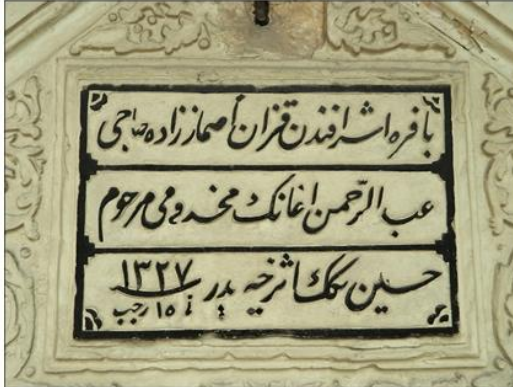 بافره اشرافندن قزان أصماز زاده حاجی
عبد الرّحمن اغانك مخدومی مرحوم
حسین بكك اثر خیریه یدر ١٣٢٧
١٥ رجب